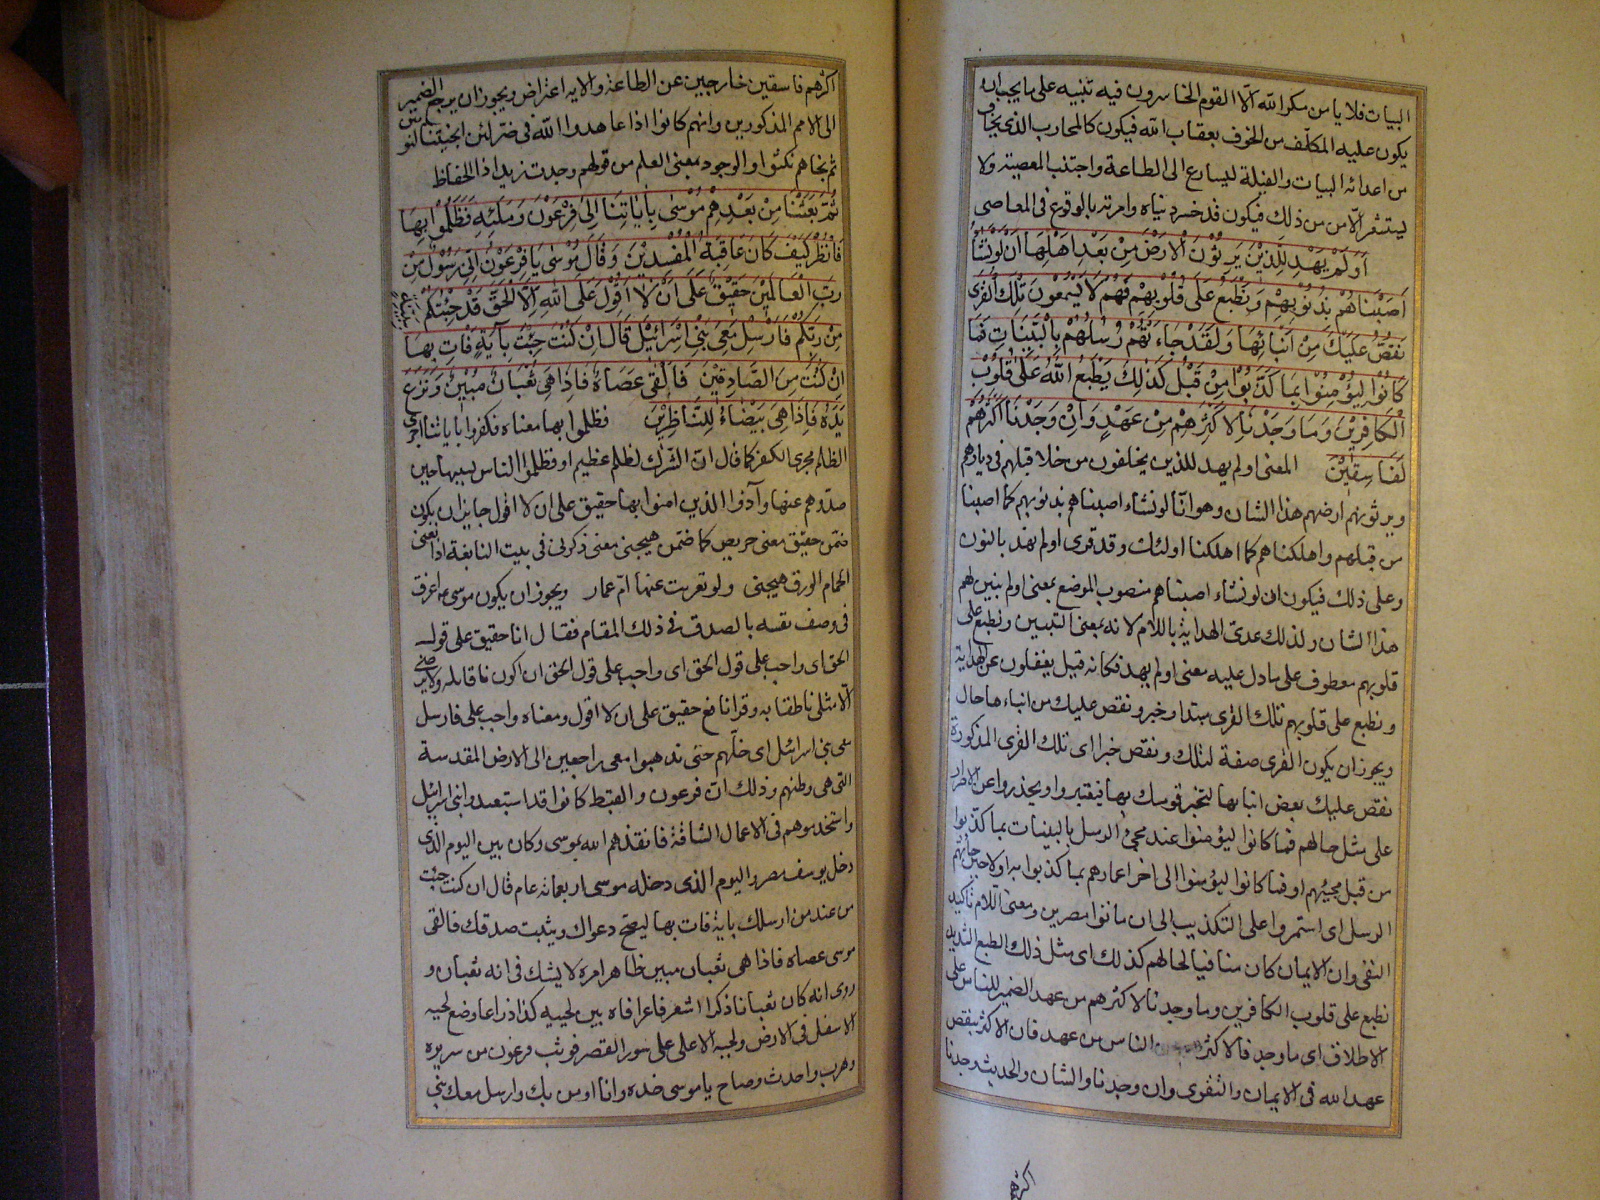 البيات فلا يامن مكر الله الا القوم الخاسرون فيه تنبيه على ما يجب ان
يكون عليه المكلف من الخوف بعقاب الله فيكون كالمحارب الذي يخاف
من اعدائه البيات والغيلة ليسارع الى الطاعة واجتنب المعصية ولا
يستشعر الامن من ذلك فيكون قد خسر دنياه واخرته بالوقوع في المعاصي
اَوَلَمْ يَهْدِ لِلَّذِينَ يَرِثُونَ الْاَرْضَ مِنْ بَعْدِ اَهْلِهَا اَنْ لَوْ نَشَاءُ
اَصَبْنَاهُمْ بِذُنُوبِهِمْ وَنَطْبَعُ عَلَى قُلُوبِهِمْ فَهُمْ لَا يَسْمَعُونَ تِلْكَ الْقُرَى
نَقُصُّ عَلَيْكَ مِنْ اَنْبَائِهَا وَلَقَدْ جَاءَتْهُمْ رُسُلُهُمْ بِالْبَيِّنَاتِ فَمَا
كَانُوا لِيُؤْمِنُوا بِمَا كَذَّبُوا مِنْ قَبْلُ كَذَلِكَ يَطْبَعُ اللهُ عَلَى قُلُوبِ
الْكَافِرِينَ وَمَا وَجَدْنَا لِاَكْثَرِهِمْ مِنْ عَهْدٍ وَاِنْ وَجَدْنَا اَكْثَرَهُمْ
لَفَاسِقِينَ المعنى اولم يهد للذين يخلفون من خلا قبلهم في ديارهم
ويرثونهم ارضهم هذا الشان وهو انا لو نشاء اصبناهم بذنوبهم كما اصبنا
من قبلهم واهلكناهم كما اهلكنا اولئك وقد قرى اولم نهد بالنون
وعلى ذلك فيكون ان لو نشاء اصبناهم منصوب الموضع بمعنى اولم نبين لهم
هذا الشان ولذلك عدى الهداية باللام لانه بمعنى التبيين ونطبع على
قلوبهم معطوف على ما دل عليه معنى اولم يهد فكانه قيل يغفلون عن الهداية
ونطبع على قلوبهم تلك القرى مبتدا وخبر ونقص عليك من انباءها حال
ويجوز ان يكون القرى صفة لتلك ونقص خبرا اى تلك القرى المذكورة
نقص عليك بعض انباءها لتخبر قومك بها فيعتبروا ويحذروا عن الاصرار
على مثل حالهم فما كانوا ليؤمنوا عند مجئ الرسل بالبينات بما كذبوا
من قبل مجيئهم او فما كانوا ليؤمنوا الى اخر اعمارهم بما كذبوا به اولا حين جاءتهم
الرسل اى استمروا على التكذيب الى ان ماتوا مصرين ومعنى اللام تأكيد
النفي وان الايمان كان منافيا لحالهم كذلك اى مثل ذلك الطبع الشديد
نطبع على قلوب الكافرين وما وجدنا لاكثرهم من عهد الضمير للناس على
الاطلاق اى ما وجدنا لاكثر الناس من عهد فان الاكثر ينقض
عهد الله في الايمان والتقوى وان وجدنا والشان والحديث وجدنا
اكثرهم
اكثرهم فاسقين خارجين عن الطاعة والايه اعتراض ويجوز ان يرجع الضمير
الى الامم المذكورين وانهم كانوا اذا عاهدوا الله في ضر لئن انجيتنا لنؤمنن
ثم نجاهم نكثوا والوجود بمعنى العلم من قولهم وجدت زيدا ذا الحفاظ
ثُمَّ بَعَثْنَا مِنْ بَعْدِهِمْ مُوسَى بِاٰيَاتِنَا اِلَى فِرْعَوْنَ وَمَلَئِهِ فَظَلَمُوا بِهَا
فَانْظُرْ كَيْفَ كَانَ عَاقِبَةُ الْمُفْسِدِينَ وَقَالَ مُوسَى يَا فِرْعَوْنُ اِنِّي رَسُولٌ مِنْ
رَبِّ الْعَالَمِينَ حَقِيقٌ عَلَى اَنْ لَا اَقُولَ عَلَى اللهِ اِلَّا الْحَقَّ قَدْ جِئْتُكُمْ ببينة
مِنْ رَبِّكُمْ فَاَرْسِلْ مَعِيَ بَنِي اِسْرَائِيلَ قَالَ اِنْ كُنْتَ جِئْتَ بِاٰيَةٍ فَاْتِ بِهَا
اِنْ كُنْتَ مِنَ الصَّادِقِينَ فَاَلْقَى عَصَاهُ فَاِذَا هِيَ ثُعْبَانٌ مُبِينٌ وَنَزَعَ
يَدَهُ فَاِذَا هِيَ بَيْضَاءُ لِلنَّاظِرِينَ فظلموا بها معناه فكفروا باياتنا اجرى
الظلم مجرى الكفر كما قال ان الشرك لظلم عظيم او فظلموا الناس بسببها حين
صدوهم عنها وآذوا الذين امنوا بها حقيق على ان لا اقول جايز ان يكون
ضمن حقيق معنى حريص كما ضمن هيجنى معنى ذكرني في بيت النابغة اذا تغنى
الحمام الورق هيجنى ولو تعزيت عنها ام عمار ويجوز ان يكون موسى ع اغرق
في وصف نفسه بالصدق في ذلك المقام فقال انا حقيق على قول
الحق اى واجب على قول الحق اى واجب على قول الحق ان اكون انا قايله ولا يرضى
الا مثلى ناطقا به وقرا نافع حقيق على ان لا اقول ومعناه واجب على فارسل
معى بنى اسرائيل اى خلهم حتى يذهبوا معى راجعين الى الارض المقدسة
التى هى وطنهم وذلك ان فرعون والقبط كانوا قد استعبدوا بنى اسرائيل
واستخدموهم في الاعمال الشاقة فانقذهم الله بموسى وكان بين اليوم الذى
دخل يوسف مصر واليوم الذى دخله موسى اربعمائة عام قال ان كنت جئت
من عند من ارسلك باية فات بها ليصح دعواك ويثبت صدقك فالقى
موسى عصاه فاذا هى ثعبان مبين ظاهر امره لا يشك في انه ثعبان و
روى انه كان ثعبانا ذكرا اشعر فاغرا فاه بين لحييه كذا ذراعا وضع لحيه
الاسفل في الارض ولحيه الاعلى على سور القصر فوثب فرعون من سريره
وهرب واحدث وصاح يا موسى خذه وانا اومن بك وارسل معك بنى